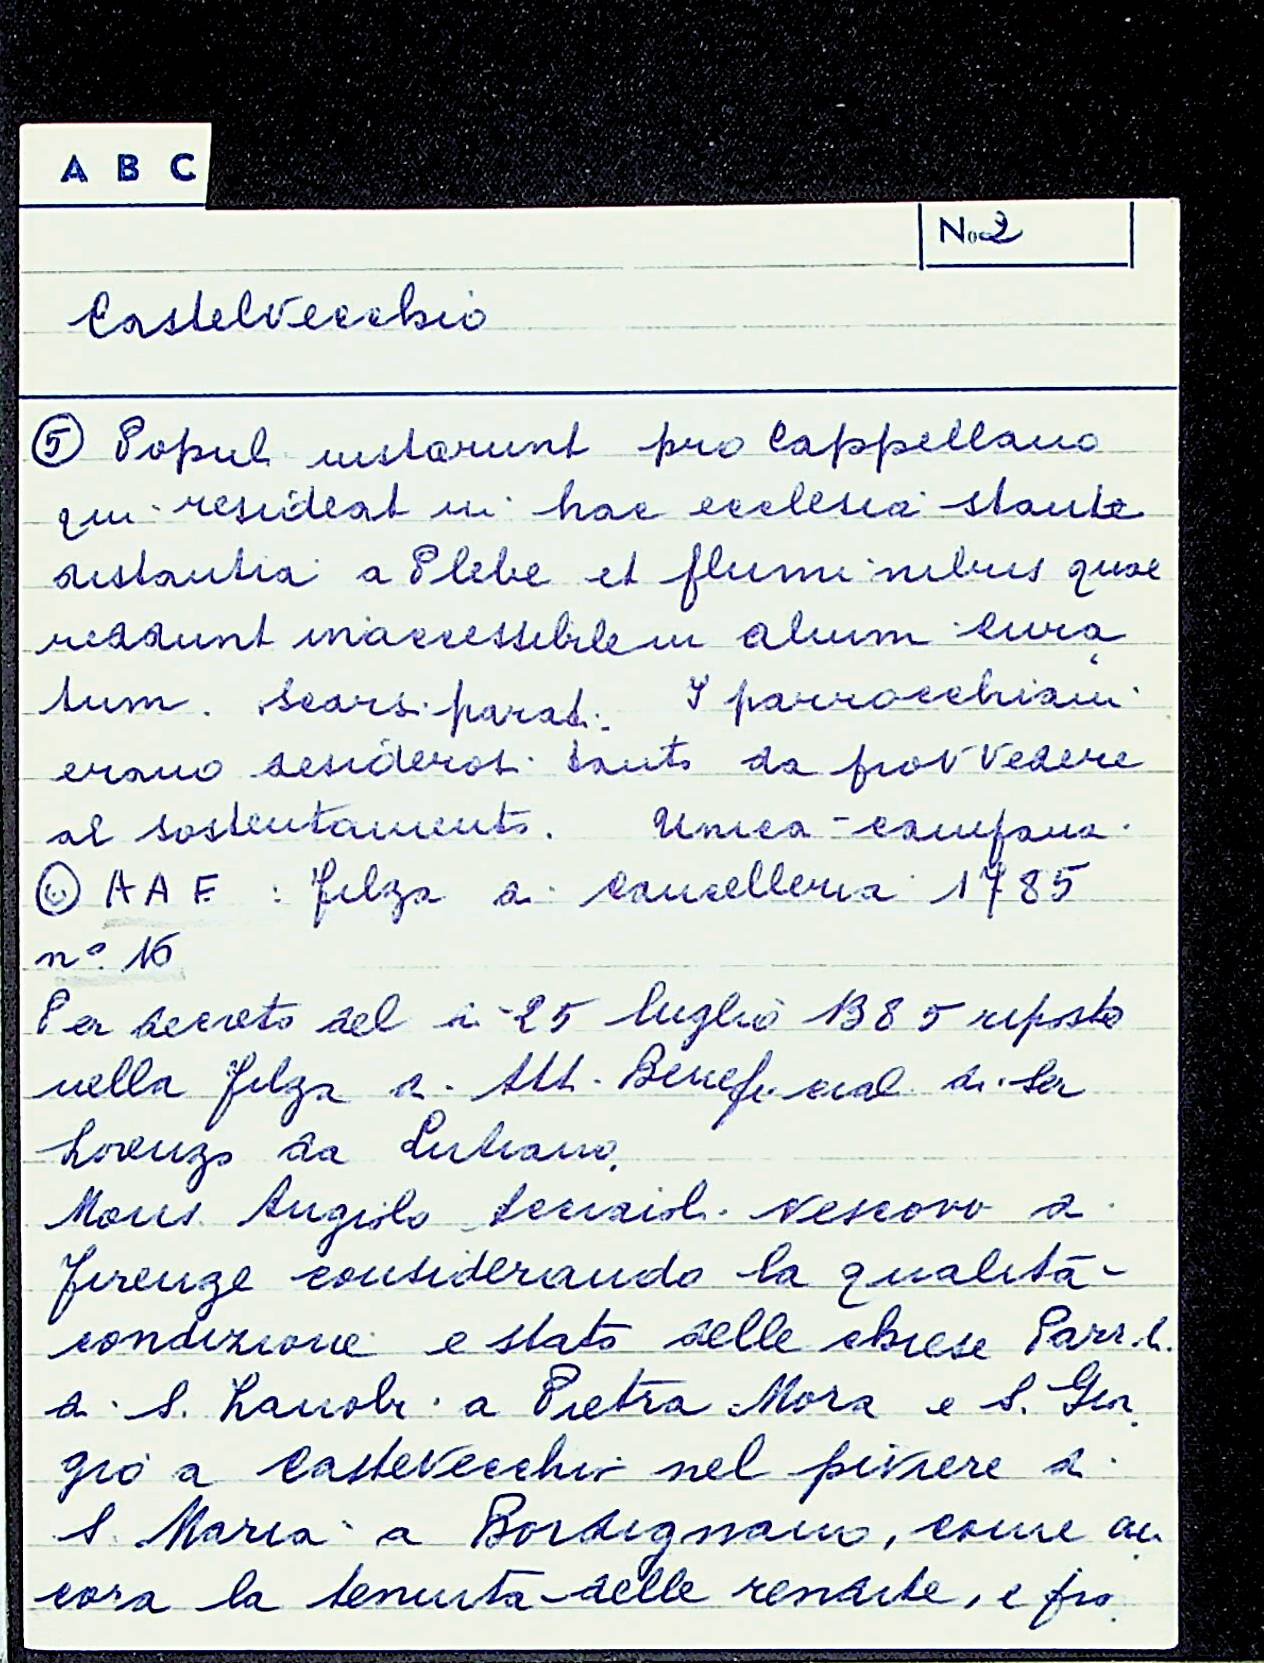 A B C
No 2
Castelvecchio
⑤ Populi instarunt pro Cappellano
qui resideat in hac ecclesia stante
distantia a Plebe et fluminibus quae
reddunt inaccessibilem alium cura
tum. Scarsi parati. I parrocchiani
erano desiderosi tanto da provvedere
al sostentamento. Unica campana.
⑥ A A F : filza di cancelleria 1785
n° 16
Per decreto del di 25 luglio 1385 riposto
nella filza di Atti Beneficiali di Ser
Lorenzo da Lutiano.
Mons. Angiolo Acciaioli vescovo di
Firenze considerando la qualità
condizione e stato delle chiese Parr.li
di S. Zanobi a Pietra Mora e S. Gior
gio a Castevecchio nel piviere di
S. Maria a Bordignano, come an
cora la tenuità delle rendite, e pro